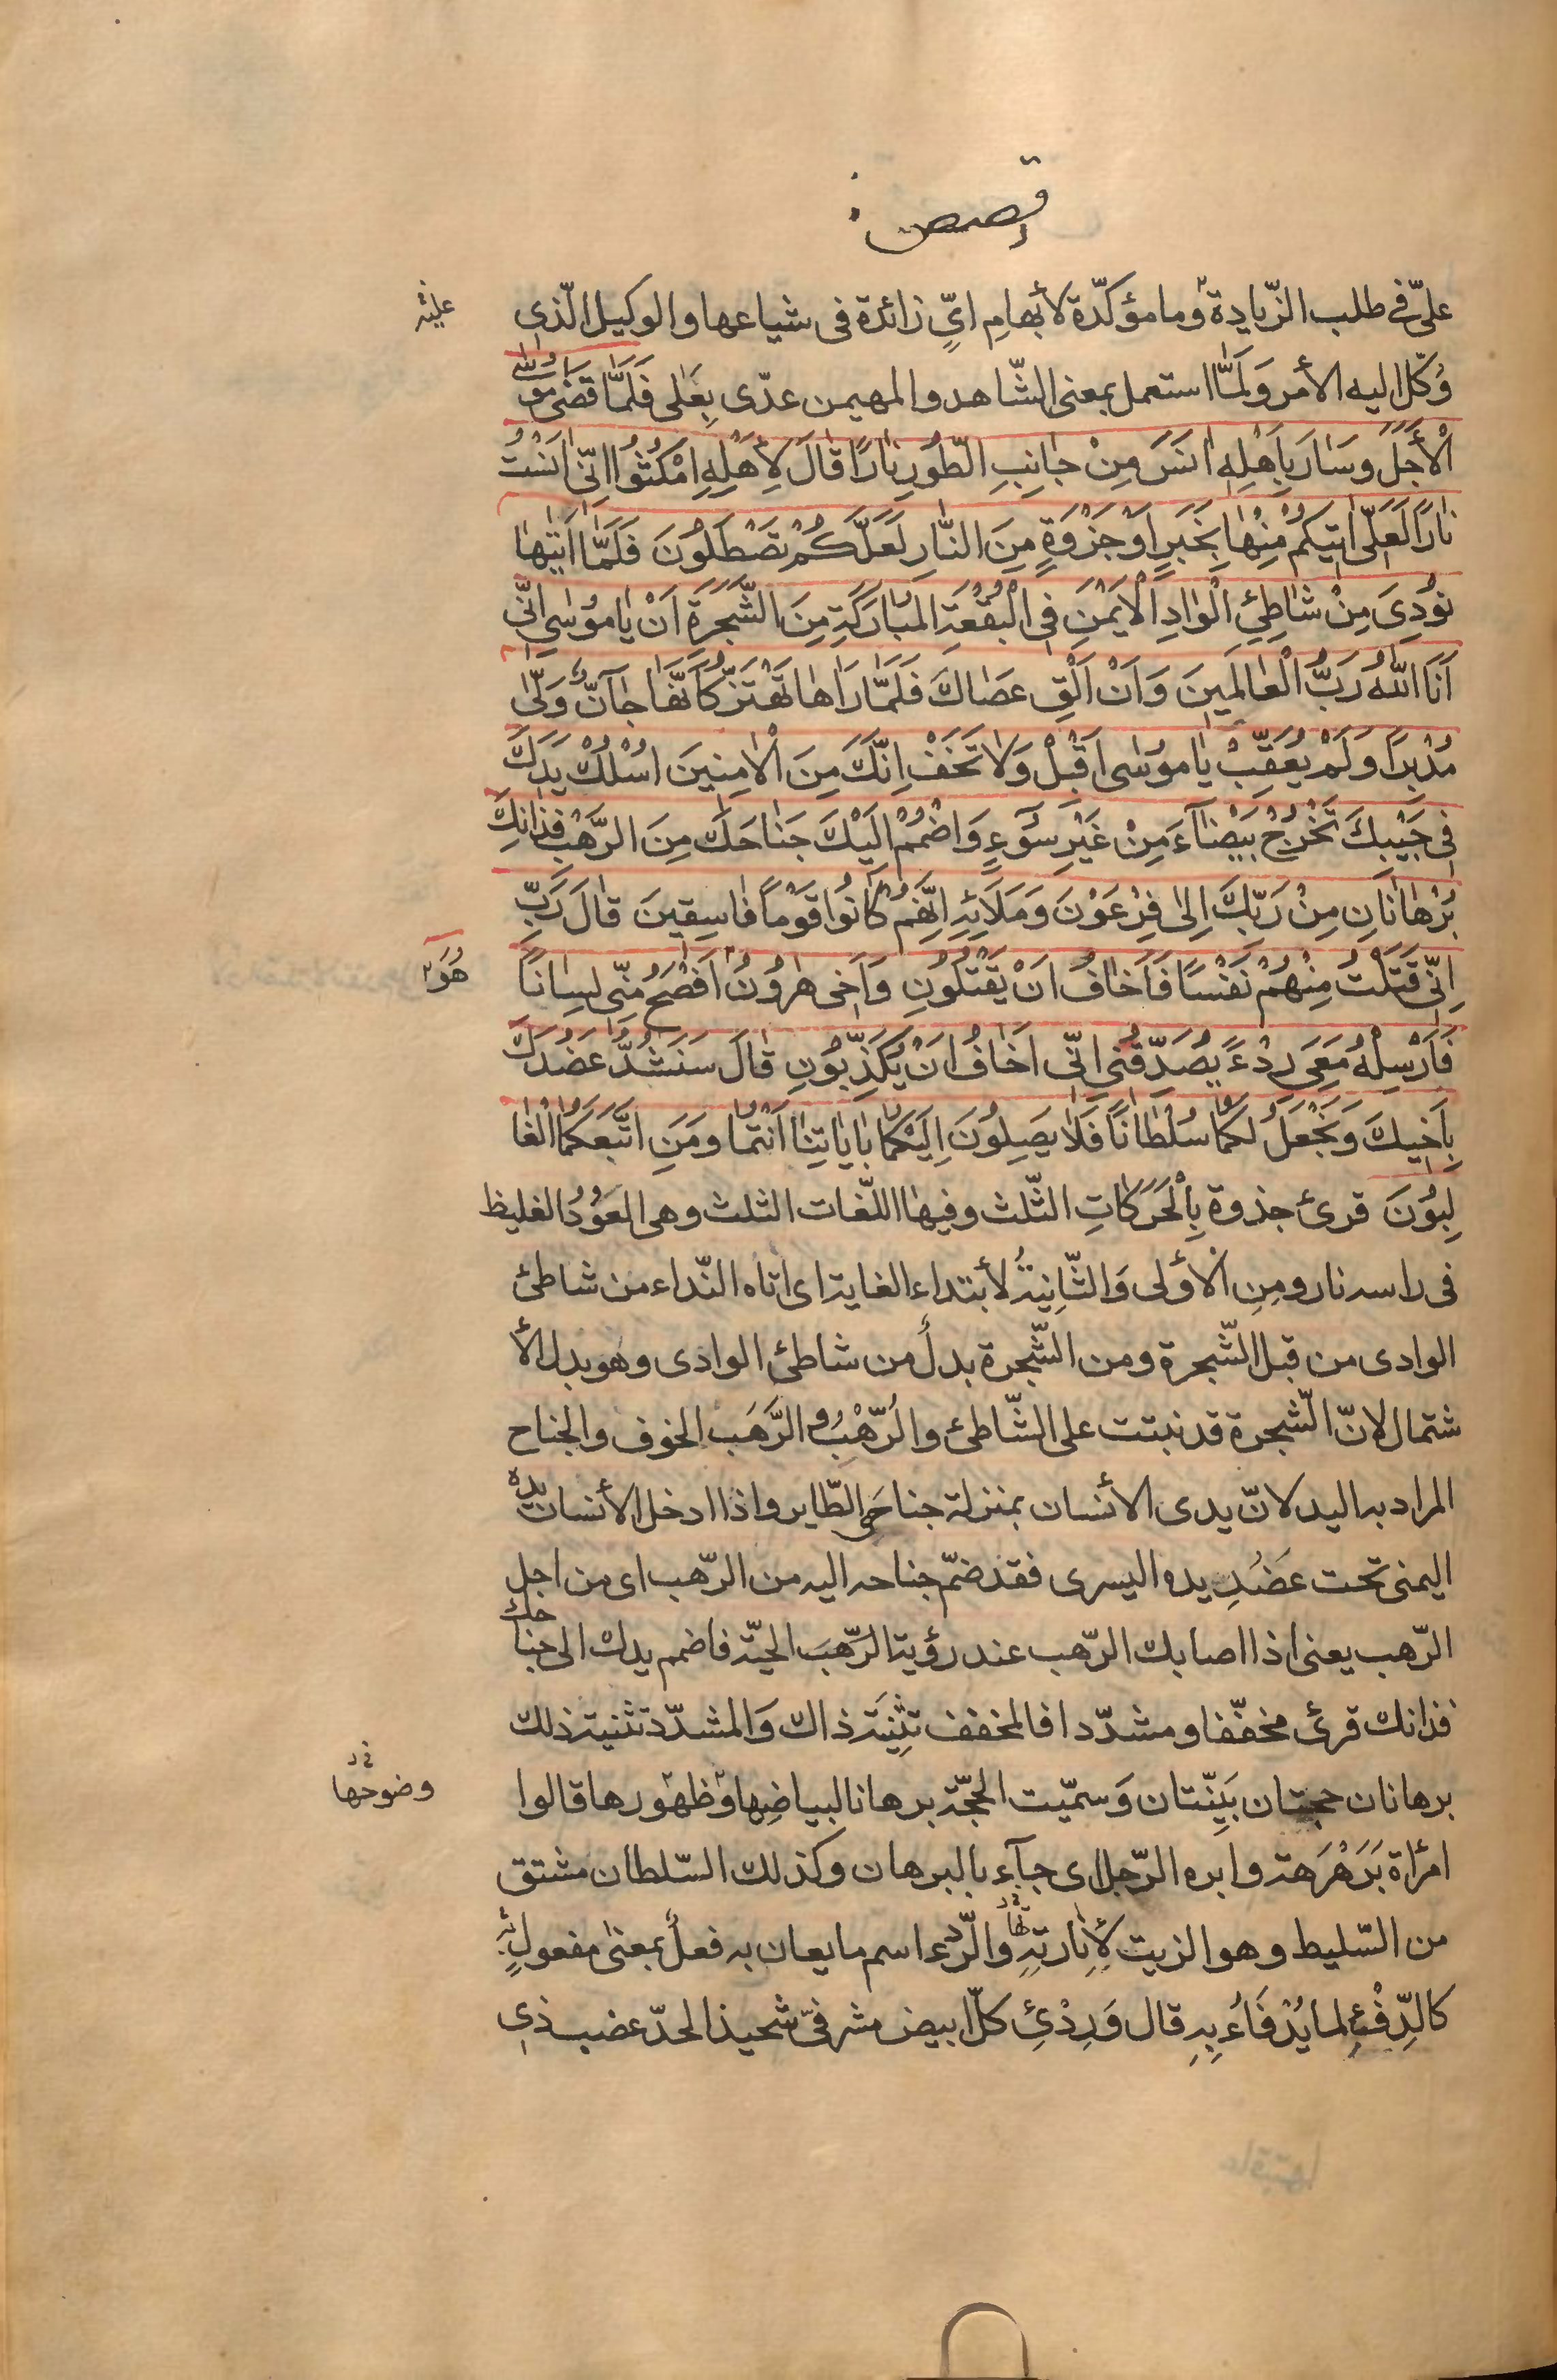 قصص
علىّ فى طلب الزّيادة وما مؤكدّة لأبهامِ اىٍّ زائدة فى شياعها والوكيل الّذى
عليْه
وُكّل اليه الأمر وَلَمّا استعمل بمعنى الشّاهد والمهيمن عدّى بِعَلى فَلَمّا قَضىٰ مُوسَى
الْأَجَلَ وسَارَ بِأَهْلِهِ انَسَ مِنْ جانِبِ الطُّورِ نارًا قالَ لِأَهْلِهِ امْكُثُوا اِنّى انَسْتُ
نارًا لَعَلّى اتيكُمْ مِنْها بِخَبَرٍ اَوْ جَزْوَةٍ مِنَ النّارِ لَعَلَّكُمْ تَصْطَلُونَ فَلَمّا اَتٰيها
نُودِىَ مِنْ شاطِئِ الْوادِ الْاَيْمَنِ فِى الْبُقْعَةِ الْمُبارَكَةِ مِنَ الشَّجَرَةِ اَنْ يا مُوسٰى اِنّى
اَنَا اللّهُ رَبُّ الْعالَمينَ وَاَنْ اَلْقِ عَصاكَ فَلَمّا رَاها تَهْتَزُّ كَاَنَّها جآنٌّ وَلّىٰ
مُدْبِرًا وَلَمْ يُعَقِّبْ يا مُوسٰى اَقْبِلْ وَلا تَخَفْ اِنَّكَ مِنَ الْامِنينَ اُسْلُكْ يَدَكَ
فى جَيْبِكَ تَخْرُجْ بَيْضآءَ مِنْ غَيْرِ سُوءٍ وَاضْمُمْ اِلَيْكَ جَناحَكَ مِنَ الرَّهْبِ فَذانِكَ
بُرْهانانِ مِنْ رَبِّكَ اِلىٰ فِرْعَوْنَ وَمَلَائِهِ اِنَّهُمْ كانُوا قَوْمًا فاسِقينَ قالَ رَبِّ
اِنّى قَتَلْتُ مِنْهُمْ نَفْسًا فَاَخافُ اَنْ يَقْتُلُونِ وَاَخى هٰرُونُ اَفْصَحُ مِنّى لِسانًا
هُوَ
فَاَرْسِلْهُ مَعِىَ رِدْءً يُصَدِّقُنى اِنّى اَخافُ اَنْ يُكَذِّبُونِ قالَ سَنَشُدُّ عَضُدَكَ
بِاَخيكَ وَنَجْعَلُ لَكُما سُلْطانًا فَلا يَصِلُونَ اِلَيْكُما بِاياتِنا اَنْتُما ومَنِ اتَّبَعَكُمَا الْغا
لِبُونَ قرئ جذوة بِالْحَرَكاتِ الثّلث وفيها اللّغات الثلث وهى العَوُدُ الغليظ
فى راسه نار ومِنِ الْأولى وَالثّانِيَةُ لأبتداء الغاية اى اتاه النّداء من شاطئ
الوادى من قبل الشّجرة ومن الشّجرة بدلٌ من شاطئ الوادى وهو بدل الأ
شتمال لانّ الشّجرة قد نبتت على الشّاطئ والرّهْبُ والرَّهَب الخوف والجناح
المراد به اليد لانّ يدى الأنسان بمنزلة جناحَىِ الطّاير واذا ادخل الأنسان يده
اليمنى تحت عَضُدِ يده اليسرى فقد ضمّ جناحه اليه من الرّهب اى من اجل
الرّهب يعنى اذا اصابك الرّهب عند رؤية الرّهبَ الحيّة فاضمم يدك الى جناحك
فذانك قرئ مخفّفا ومشدّدا فالمخفف تثِنيَة ذاك وَالمشدّد تثنية ذلك
برهانان حجتان بَيّنتان وَسمّيت الحجّة برهانا لبياضِها وَظهورها قالوا
وضوحها
امرأة بَرَهْرَهة وابره الرّجل اى جآء بالبرهان وكذلك السّلطان مشتق
من السّليط وهو الزيت لأِنارتِهِ والرّدء اسم ما يعان به فعلٌ بمعنىٰ مفعولٍ به
كالدِّفْءِ لما يُدْفَاءُ بِهِ قال وَرِدْئِ كلّ ابيض مشرفىّ شحيذ الحدّ عضب ذى